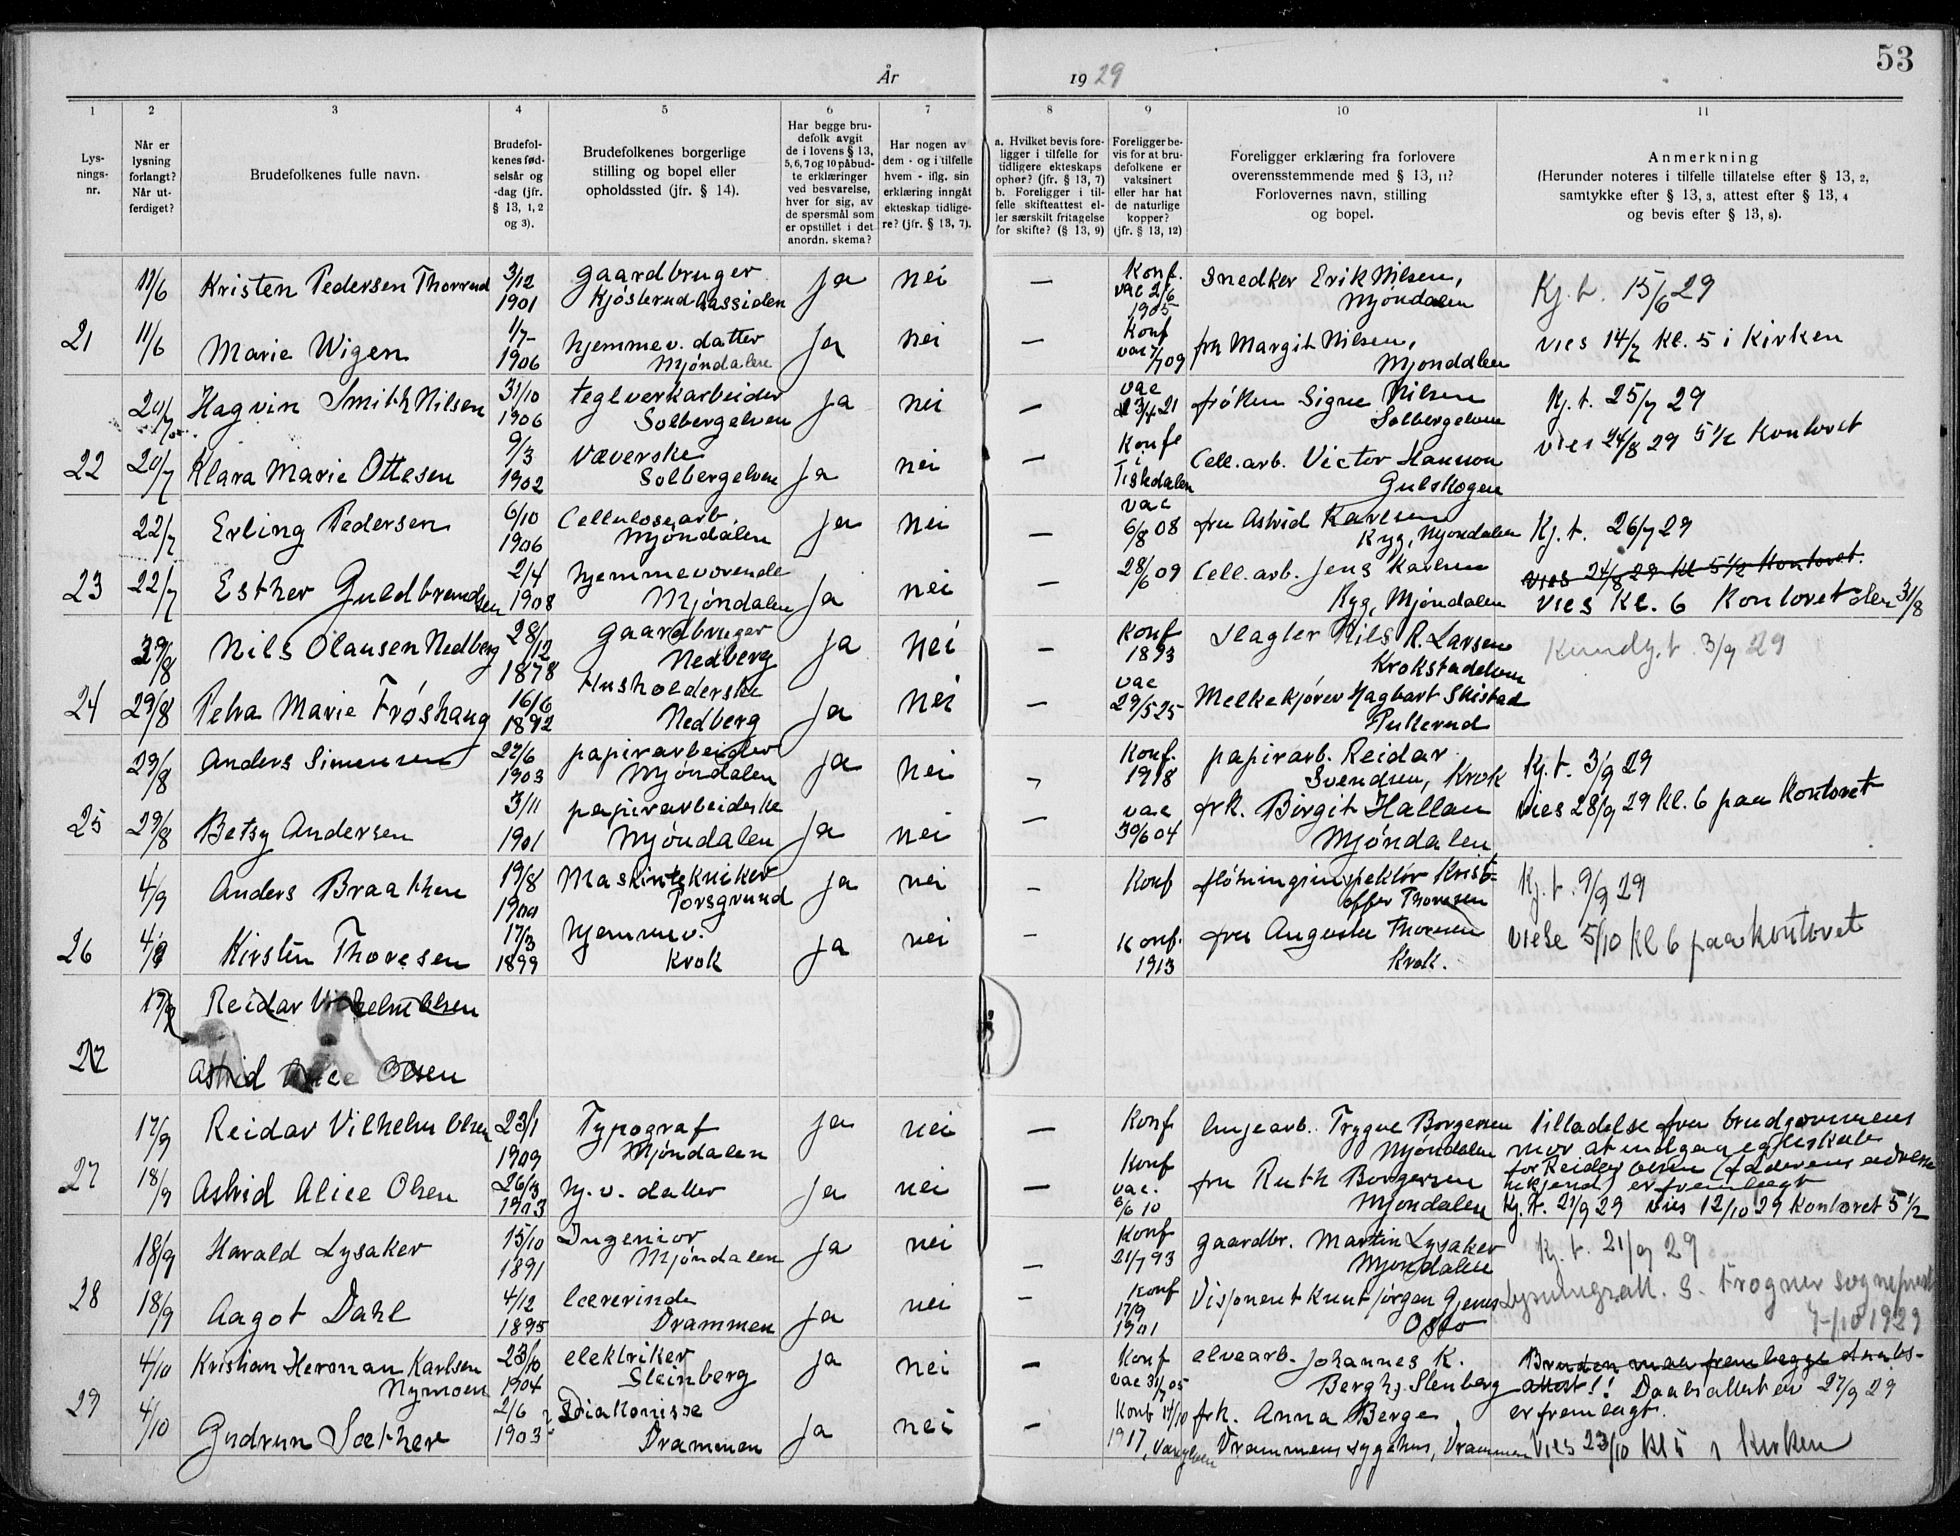 53
År 1929
1 2 3 4 5 6 7 8 9 10 11
Lys-
nings-
nr.
Når er
lysning
forlangt?
Når ut-
ferdiget?
Brudefolkenes fulle navn.
Brudefol-
kenes fød-
selsår og
-dag (jfr.
§ 13, 1, 2
og 3).
Brudefolkenes borgerlige
stilling og bopel eller
opholdssted (jfr. § 14).
Har begge bru-
defolk avgit
de i lovens § 13,
5, 6, 7 og 10 påbud-
te erklæringer
ved besvarelse,
hver for sig, av
de spørsmål som
er opstillet i det
anordn. skema?
Har nogen av
dem - og i tilfelle
hvem - iflg. sin
erklæring inngått
ekteskap tidlige-
re? (jfr. § 13, 7).
a. Hvilket bevis fore-
ligger i tilfelle for
tidligere ekteskaps
ophør? (jfr. § 13, 7)
b. Foreligger i til-
felle skifteattest el-
ler særskilt fritagelse
for skifte? (§ 13, 9)
Foreligger be-
vis for at bru-
defolkene er
vaksinert
eller har hat
de naturlige
kopper?
(jfr. § 13, 12)
Foreligger erklæring fra forlovere
overensstemmende med § 13, 11?
Forlovernes navn, stilling
og bopel.
Anmerkning
(Herunder noteres i tilfelle tillatelse efter § 13, 2,
samtykke efter § 13, 3, attest efter § 13, 4
og bevis efter § 13, 8).
11/6 Kristen Pedersen Thorrud 3/12 1901 gaardbruger Kjösterud Aassiden Ja nei — Konf. vac 2/6 1905 Snedker Erik Nilsen, Mjøndalen Kj. t. 15/6 29
21 11/6 Marie Wigen 1/7 1906 hjemmev. datter Mjøndalen Ja nei — Konf vac 7/7 09 fru Margit Nilsen, Mjøndalen vies 14/7 kl. 5 i Kirken
20/7 Hagvin Smith Nilsen 31/10 1906 teglverkarbeider Solbergelven Ja nei — vac 23/4 21 frøken Signe Nilsen Solbergelven Kj. t. 25/7 29
22 20/7 Klara Marie Ottesen 9/3 1902 Væverske Solbergelven Ja nei — Konf i Tiskdalen Cell. arb. Victor Hansson Gulskogen vies 24/8 29 5 1/2 Kontoret
22/7 Erling Pedersen 6/10 1906 Cellulosearb. Mjøndalen Ja nei — vac 6/8 08 fru Astrid Karlsen Ryg, Mjøndalen Kj. t. 26/7 29
23 22/7 Esther Guldbrandsen 2/4 1908 hjemmeværende Mjøndalen Ja nei — 28/6 09 Cell. arb. Jens Karlsen Ryg, Mjøndalen vies 24/8 29 kl 5 1/2 Kontoret.
vies Kl. 6 Kontoret den 31/8
29/8 Nils Olausen Nedberg 28/12 1878 gaardbruger Nedberg Ja nei — Konf 1893 Slagter Nils R. Larsen Krokstadelven Kundg. t. 3/9 29
24 29/8 Petra Marie Frøshaug 16/6 1892 Husholderske Nedberg Ja nei — vac 29/5 25 Melkekjører Hagbart Skistad Pukerud
29/8 Anders Simensen 27/6 1903 papirarbeider Mjøndalen Ja nei — Konf. 1918 papirarb. Reidar Svendsen, Krok Kj. t. 3/9 29
25 29/8 Betsy Andersen 3/11 1901 papirarbeiderske Mjøndalen Ja nei — vac 30/6 04 frk. Borgit Hallan Mjøndalen vies 28/9 29 kl. 6 paa Kontoret
4/9 Anders Braathen 19/8 1900 Maskintekniker Porsgrund Ja nei — Konf fløtningsinspektör Krist- offer Thoresen Kj. t. 9/9 29
26 4/9 Kirsten Thoresen 17/3 1899 hjemmev. Krok Ja nei — Konf. 1913 fru Augusta Thoresen Krok. viese 5/10 Kl 6 paa kontoret
17/9 Reidar Vilhelm Olsen
27 Astrid Alice Olsen
17/9 Reidar Vilhelm Olsen 23/1 1909 Typograf Mjøndalen Ja nei — Konf linjearb. Trygve Borgersen Mjøndalen tilladelse fra brudgommens
mor at indgaa egteskab
for Reidar Olsen (faderens
ukjend) er fremlagt
27 18/9 Astrid Alice Olsen 26/3 1903 hj. v. datter Ja nei — Konf vac. 6/6 10 fru Ruth Borgersen Mjøndalen Kj. t. 21/9 29 vies 12/10 29 Kontoret 5 1/2
18/9 Harald Lysaker 15/10 1891 Ingeniør Mjøndalen Ja nei — Konf 21/7 93 gaardbr. Martin Lysaker Mjøndalen Kj. t. 21/9 29
28 18/9 Aagot Dahl 4/12 1895 lærerinde Drammen Ja nei — Konf 17/9 1901 Disponent Knut Jörgen Oslo Lysningsatt. s. Frogner sogneprest
7/10 1929
4/10 Kristian Herman Karlsen Nymoen 23/10 1904 elektriker Steinberg Ja nei — Konf vac 31/7 05 elvearb. Johannes K. Berg hj. Stenberg Bruden maa fremlegge daabs-
attest!! Daabsattest av 27/9 29
er fremlagt.
29 4/10 Gudrun Sæther 2/6 1903 Diakonisse Drammen Ja nei — Konf 14/10 1917, frk. Anna Berge, Drammens sygehus, Drammen vies 23/10 Kl 5 i Kirken